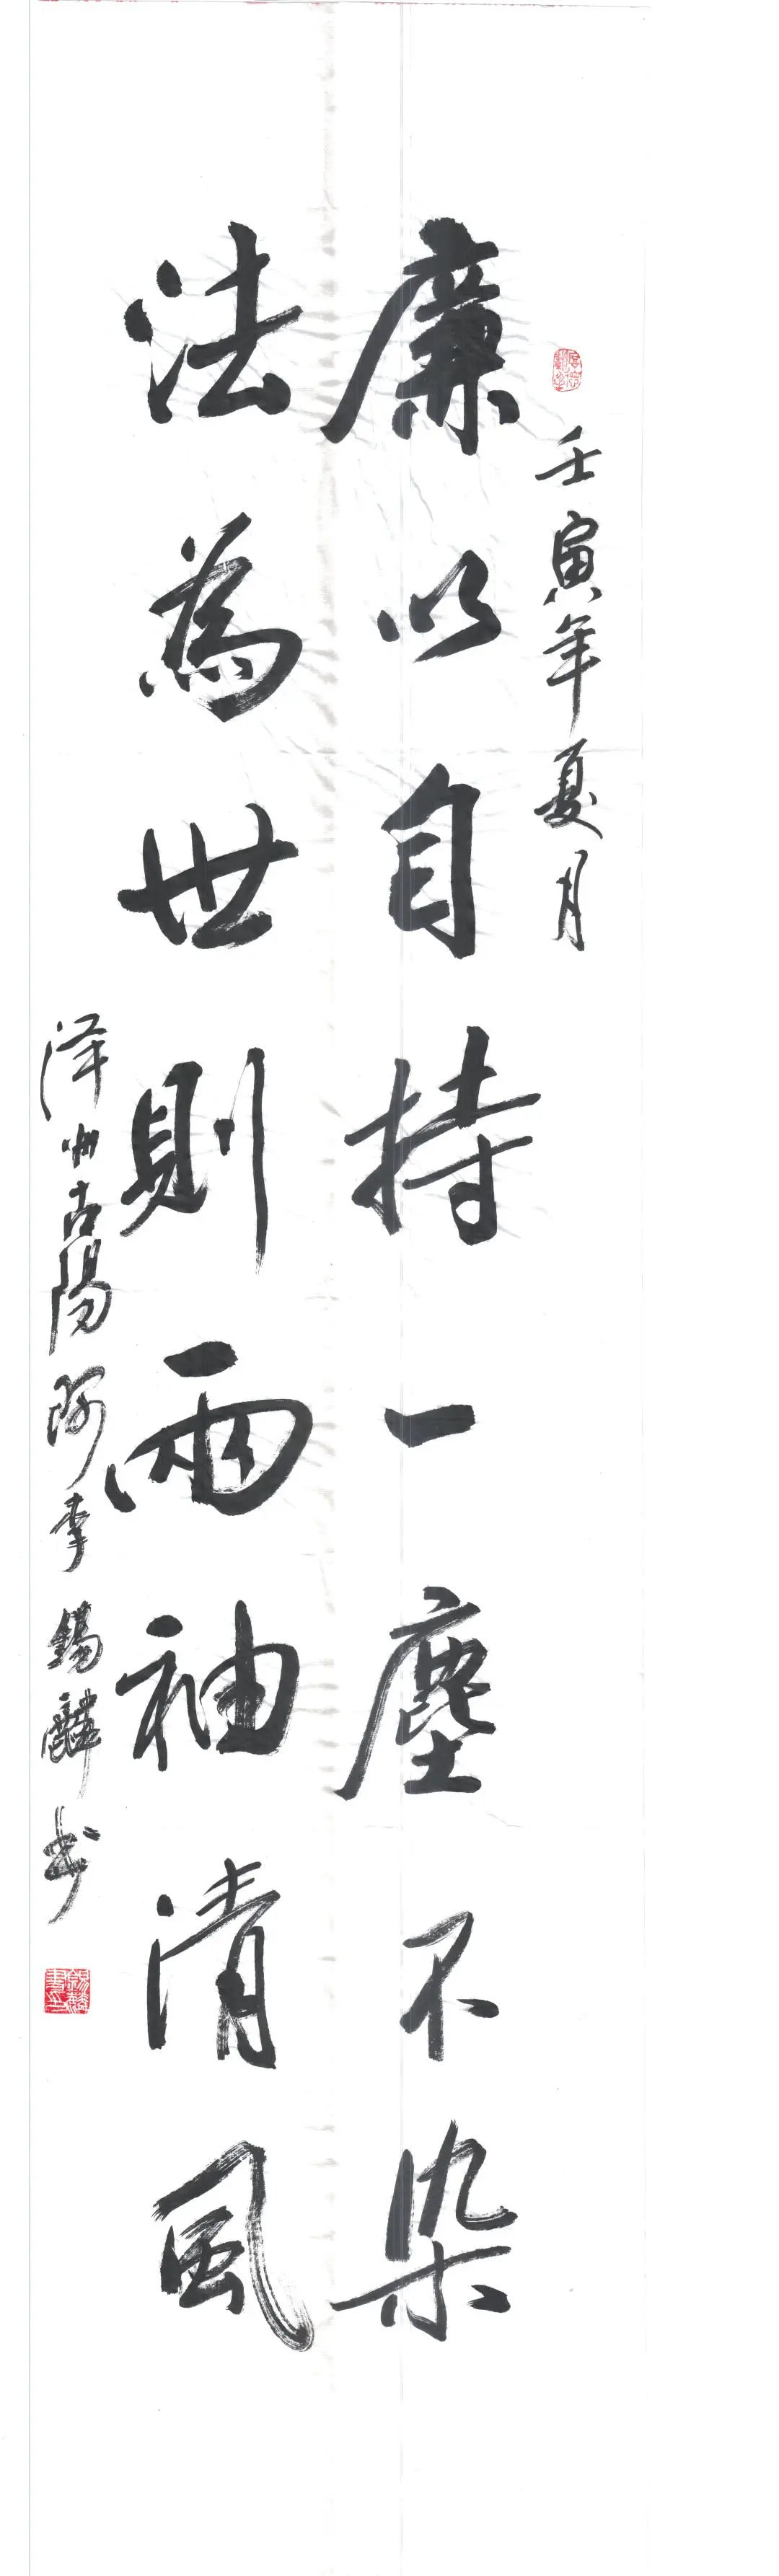 壬寅年夏月
廉以自持一塵不染
法為世則兩袖清風
泽州古陽阿李錫麟书